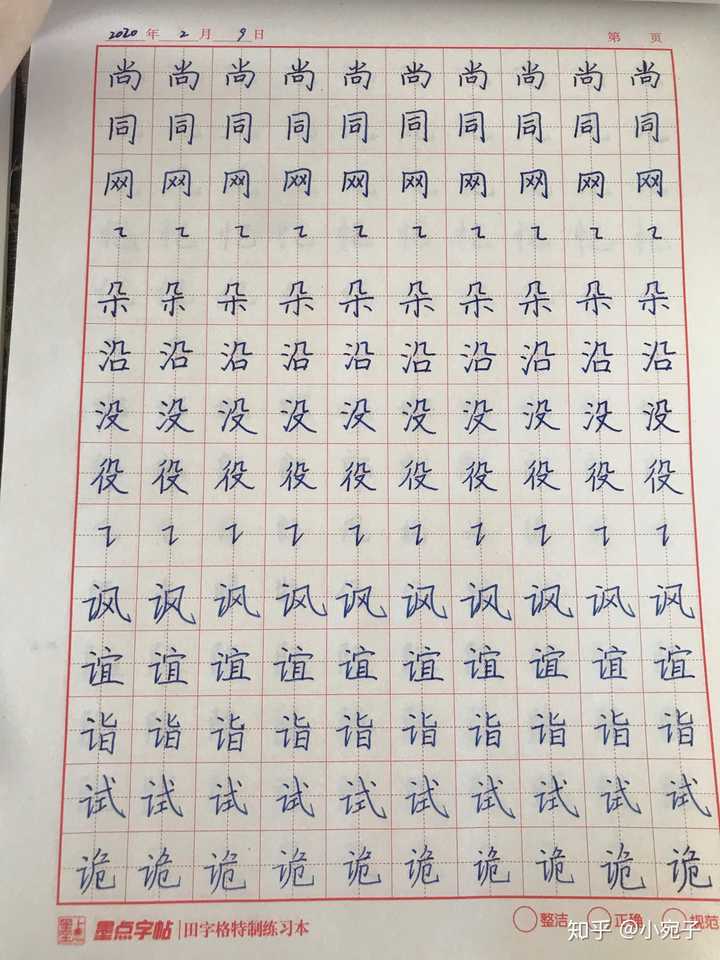 2020 年 2 月 9 日 第 页
尚 尚 尚 尚 尚 尚 尚 尚 尚 尚
同 同 同 同 同 同 同 同 同 同
网 网 网 网 网 网 网 网 网 网
朵 朵 朵 朵 朵 朵 朵 朵 朵 朵
沿 沿 沿 沿 沿 沿 沿 沿 沿 沿
没 没 没 没 没 没 没 没 没 没
役 役 役 役 役 役 役 役 役 役
讽 讽 讽 讽 讽 讽 讽 讽 讽 讽
谊 谊 谊 谊 谊 谊 谊 谊 谊 谊
诣 诣 诣 诣 诣 诣 诣 诣 诣 诣
试 试 试 试 试 试 试 试 试 试
诡 诡 诡 诡 诡 诡 诡 诡 诡 诡
墨点字帖 | 田字格特制练习本 整洁 正确 规范
知乎 @小宛子